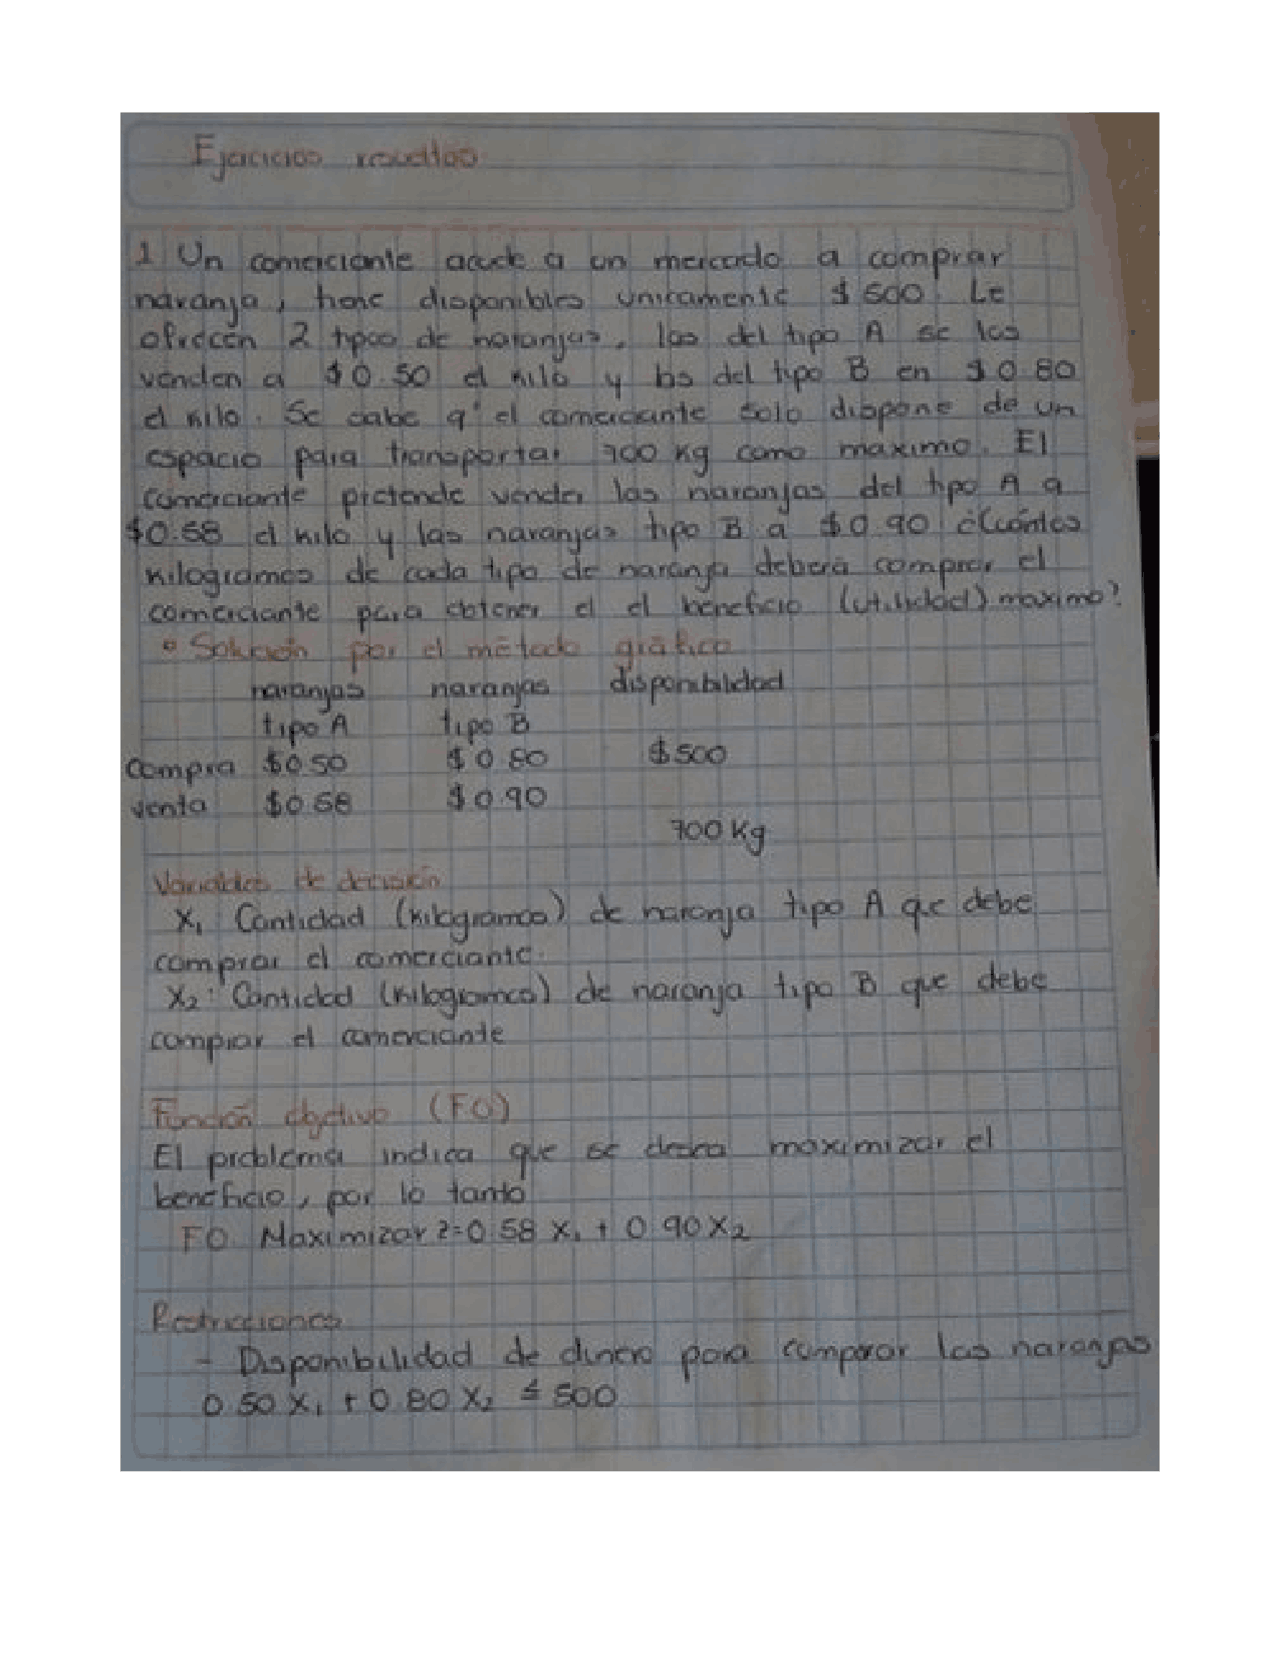 Ejercicios resueltos
1 Un comerciante acude a un mercado a comprar
naranja, tiene disponibles unicamente $ 500. Le
ofrecen 2 tipos de naranjas, las del tipo A se las
venden a $0.50 el kilo y las del tipo B en $0.80
el kilo. Se sabe q' el comerciante solo dispone de un
espacio para transportar 700 Kg como maximo. El
comerciante pretende vender las naranjas del tipo A a
$0.58 el kilo y las naranjas tipo B a $0.90 ¿Cuántos
kilogramos de cada tipo de naranja deberá comprar el
comerciante para obtener el el beneficio (utilidad) maximo?
• Solución por el método gráfico
naranjas naranjas disponibilidad
tipo A tipo B
Compra $0.50 $0.80 $500
venta $0.58 $0.90
700 Kg
Variables de decisión
X₁ Cantidad (kilogramos) de naranja tipo A que debe
comprar el comerciante.
X₂: Cantidad (kilogramos) de naranja tipo B que debe
comprar el comerciante
Función objetivo (FO)
El problema indica que se desea maximizar el
beneficio, por lo tanto
FO Maximizar z=0.58 X₁ + 0.90 X₂
Restricciones
- Disponibilidad de dinero para comprar las naranjas
0.50 X₁ + 0.80 X₂ ≤ 500